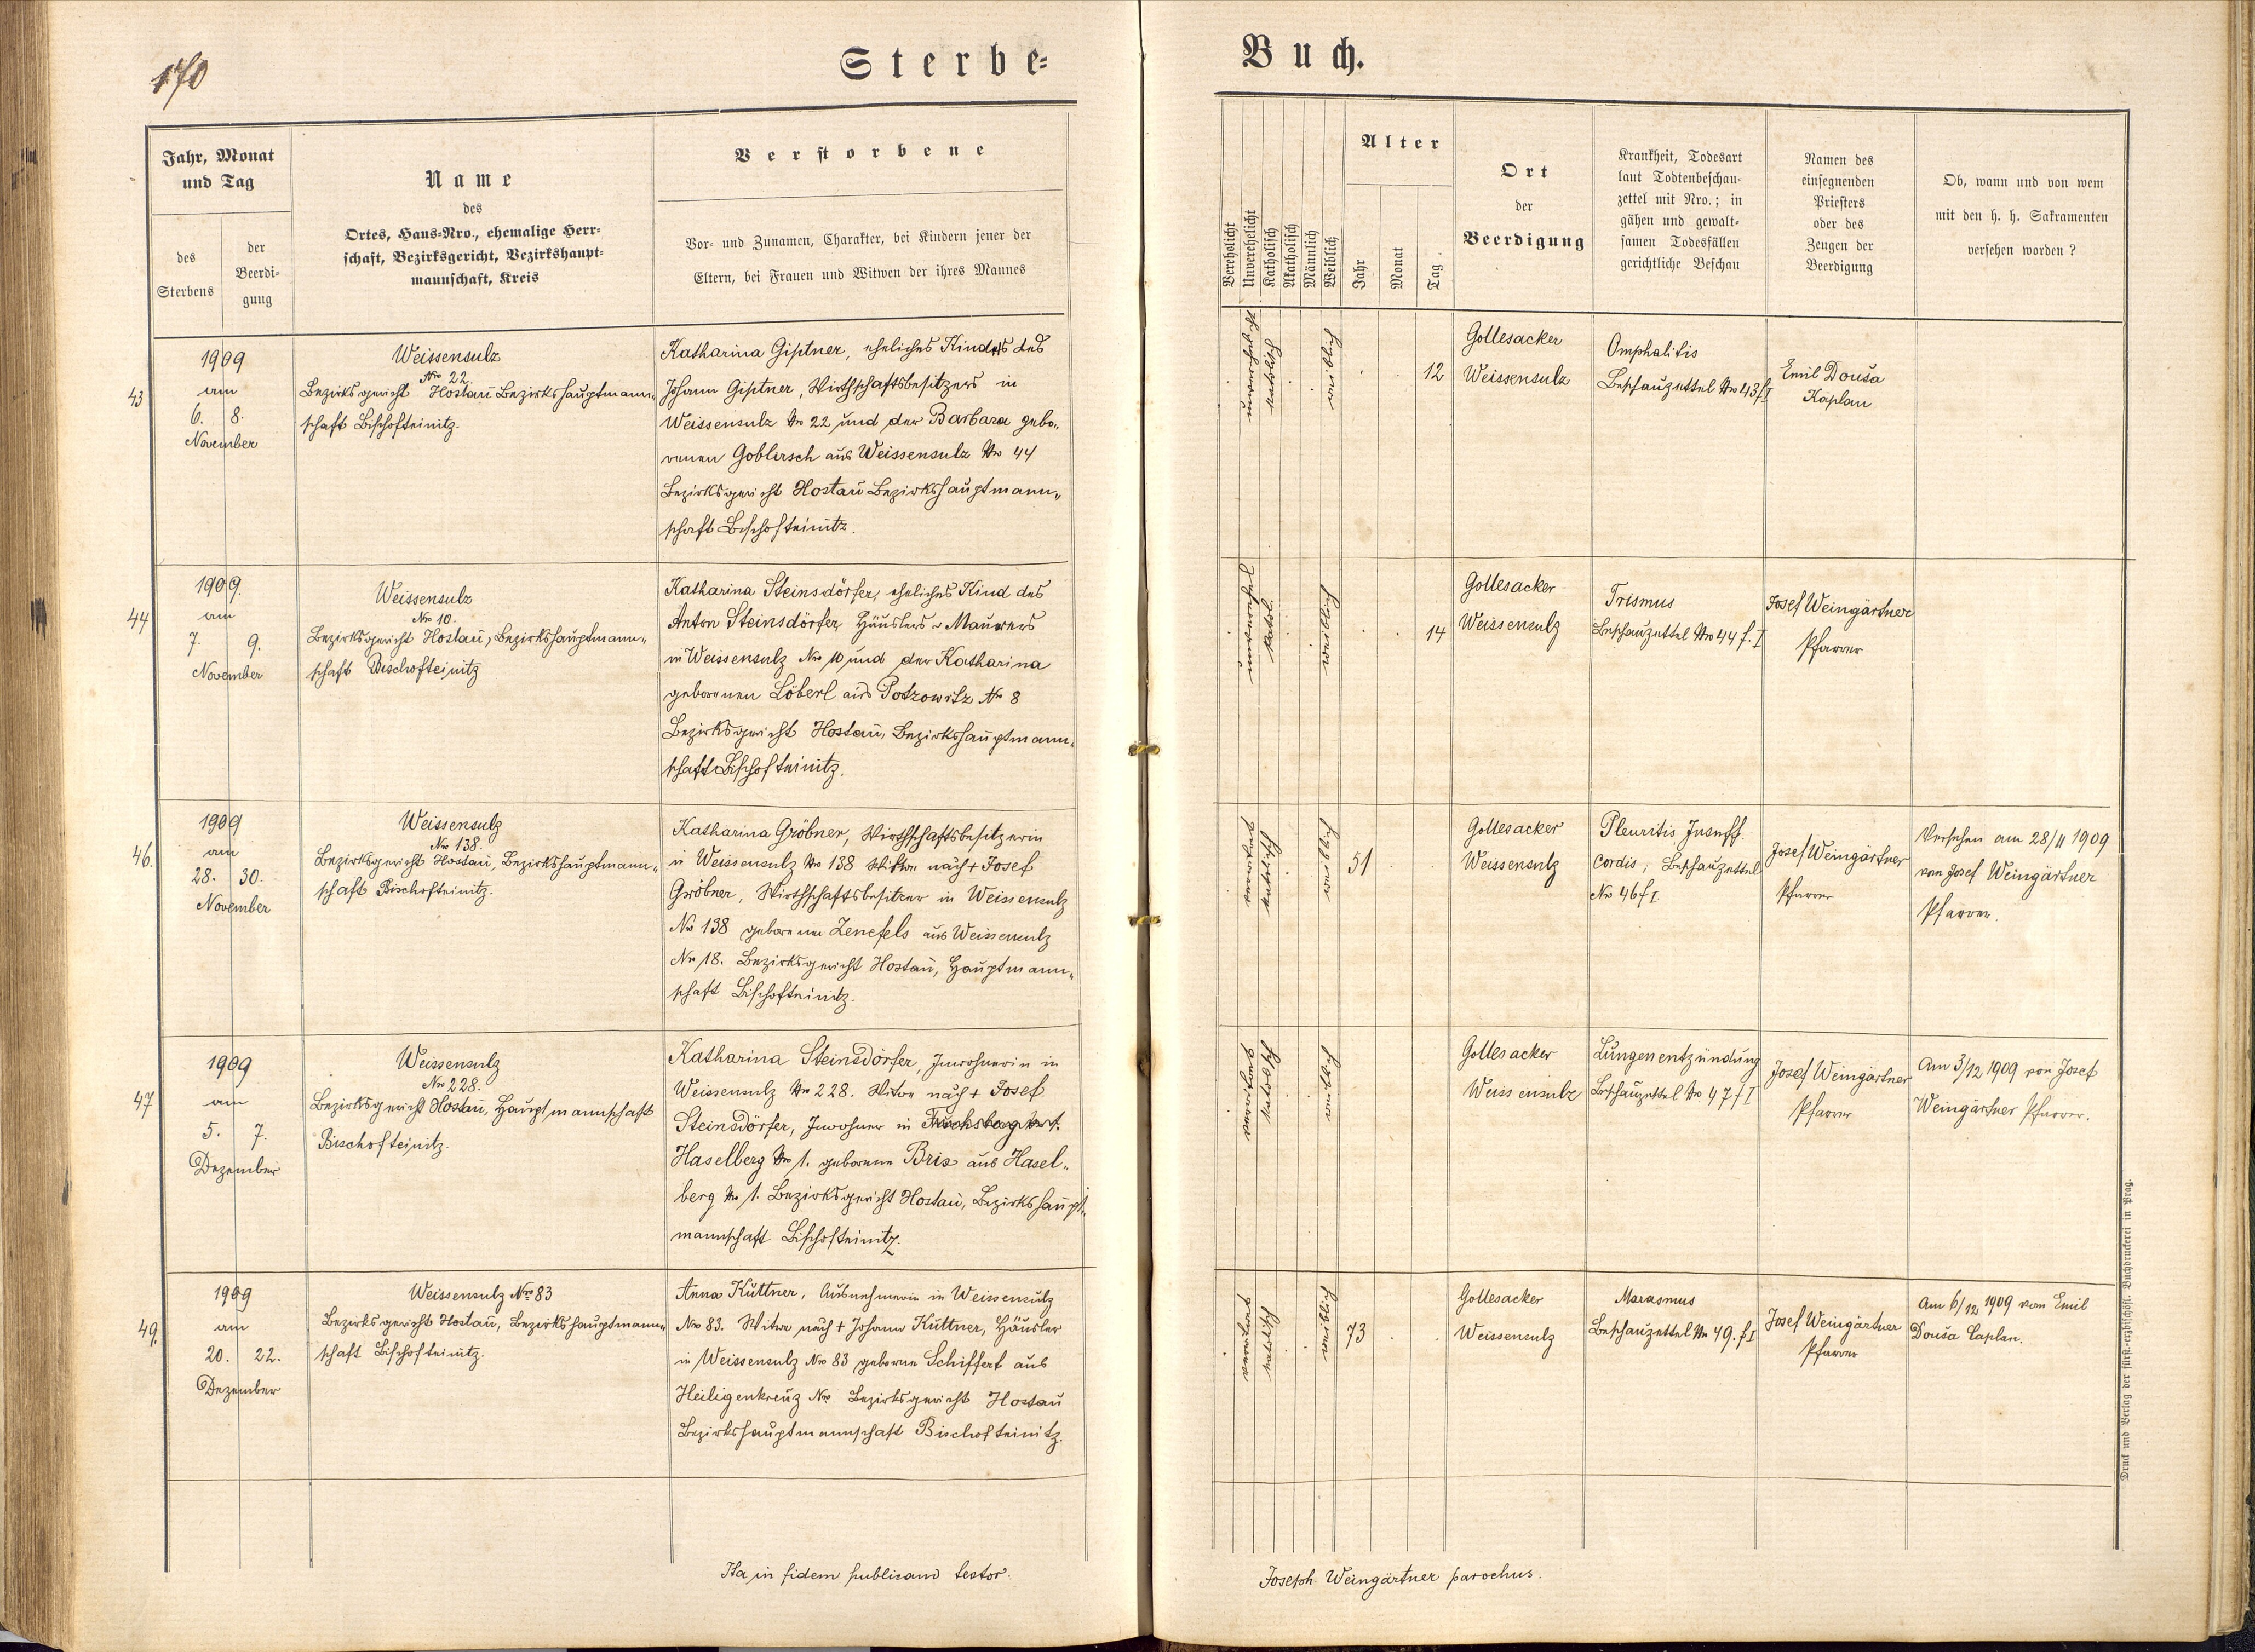 170
Sterbe=
Buch.
Jahr, Monat
und Tag
des
Sterbens
der
Beerdi-
gung
Name
des
Ortes, Haus=Nro., ehemalige Herr-
schaft, Bezirksgericht, Bezirkshaupt-
mannschaft, Kreis
Verstorbene
Vor- und Zunamen, Charakter, bei Kindern jener der
Eltern, bei Frauen und Witwen der ihres Mannes
Verehelicht
Unverehelicht
Katholisch
Akatholisch
Männlich
Weiblich
Alter
Jahr
Monat
Tag
Ort
der
Beerdigung
Krankheit, Todesart
laut Todtenbeschau-
zettel mit Nro.; in
gähen und gewalt-
samen Todesfällen
gerichtliche Beschau
Namen des
einsegnenden
Priesters
oder des
Zeugen der
Beerdigung
Ob, wann und von wem
mit den h. h. Sakramenten
versehen worden?
43
1909
am
6. 8.
November
Weissensulz
Nro 22.
Bezirksgericht Hostau Bezirkshauptmann„
schaft Bischofteinitz.
Katharina Giptner, eheliches Kind des
Johann Giptner, Wirthschaftsbesitzers in
Weissensulz Nro 22 und der Barbara gebo„
renen Goblirsch aus Weissensulz Nro 44
Bezirksgericht Hostau Bezirkshauptmann„
schaft Bischofteinitz.
unverehelicht
katholisch
weiblich
12
Gottesacker
Weissensulz
Omphalitis
Beschauzettel Nro 43 f I
Emil Douša
Kaplan
44
1909.
am
7. 9.
November
Weissensulz
Nro 10.
Bezirksgericht Hostau, Bezirkshauptmann„
schaft Bischofteinitz
Katharina Steinsdörfer, eheliches Kind des
Anton Steinsdörfer, Häuslers u Maurers
in Weissensulz Nro 10 und der Katharina
geborenen Löberl aus Potzowitz Nro 8
Bezirksgericht Hostau, Bezirkshauptmann„
schaft Bischofteinitz.
unverehelicht
kathol.
weiblich
14
Gottesacker
Weissensulz
Trismus
Beschauzettel Nro 44 f. I
Josef Weingärtner
Pfarrer
46.
1909
am
28. 30.
November
Weissensulz
Nro 138.
Bezirksgericht Hostau, Bezirkshauptmann„
schaft Bischofteinitz.
Katharina Gröbner, Wirthschaftsbesitzerin
in Weissensulz Nro 138 Witwe nach + Josef
Gröbner, Wirthschaftsbesitzer in Weissensulz
Nro 138 geborenen Zenefels aus Weissensulz
Nro 18. Bezirksgericht Hostau, Hauptmann„
schaft Bischofteinitz.
katholisch
weiblich
51
Gottesacker
Weissensulz
Pleuritis Insuff.
cordis, Beschauzettel
Nro 46 f I.
Josef Weingärtner
Pfarrer
Versehen am 28/11 1909
von Josef Weingärtner
Pfarrer.
47
1909
am
5. 7.
Dezember
Weissensulz
Nro 228.
Bezirksgericht Hostau, Hauptmannschaft
Bischofteinitz.
Katharina Steinsdörfer, Inwohnerin in
Weissensulz Nro 228. Witwe nach + Josef
Steinsdörfer, Inwohner in
Haselberg Nro 1. geborene Brix aus Hasel„
berg Nro 1. Bezirksgericht Hostau, Bezirkshaupt„
mannschaft Bischofteinitz.
katholisch
weiblich
Gottesacker
Weissensulz
Lungenentzündung
Beschauzettel Nro 47 f I
Josef Weingärtner
Pfarrer
Am 3/12 1909 von Josef
Weingärtner Pfarrer.
49.
1909
am
20. 22.
Dezember
Weissensulz Nro 83
Bezirksgericht Hostau, Bezirkshauptmann„
schaft Bischofteinitz.
Anna Kuttner, Ausnehmerin in Weissensulz
Nro 83. Witwe nach + Johann Kuttner, Häusler
in Weissensulz Nro 83 geborne Schiffert aus
Heiligenkreuz Nro Bezirksgericht Hostau
Bezirkshauptmannschaft Bischofteinitz.
katholisch
weiblich
73
Gottesacker
Weissensulz
Marasmus
Beschauzettel Nro 49. f I
Josef Weingärtner
Pfarrer
Am 6/12 1909 von Emil
Douša Caplan.
Ita in fidem publicam testor.
Joseph Weingärtner parochus.
Druck und Verlag der fürst.-erzbischöfl. Buchdruckerei in Prag.